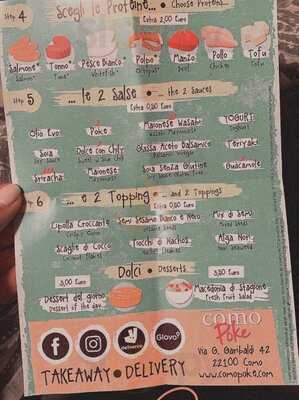 Step 4 Scegli le Proteine... • Choose Proteins...
Extra 2,00 Euro
Salmone* Tonno* Pesce Bianco* Polpo* Manzo Pollo Tofu
Salmon* Tuna* Whitefish* Octopus* Beef Chicken Tofu
Step 5 ... le 2 Salse • ... the 2 Sauces
Extra 0,50 Euro
Olio Evo Poke Maionese Wasabi YOGURT
Wasabi Mayonnaise Yoghurt
Soia Dolce con Chily Glassa Aceto Balsamico Teriyaki
Soy Sauce Sweet w Sour Chili Balsamic Vinegar
Sriracha Maionese Soia Senza Glutine Guacamole
6 ... e 2 Topping • ... and 2 Toppings
Extra 0,50 Euro
Cipolla Croccante Semi Sesamo Bianco e Nero Mix di Semi
Crispy Onion Mixed Seeds
Scaglie di Cocco Fiocchi di Nachos Alga Nori
Coconut Flakes Nachos Flakes Nori Seaweed
Dolci • Desserts
5,00 Euro 5,50 Euro
Dessert del giorno Macedonia di Stagione
Dessert of the day Fresh Fruit Salad
f deliveroo Glovo
COMO
Poke
Via G. Garibaldi 42
22100 Como
www.comopoke.com
TAKEAWAY • DELIVERY